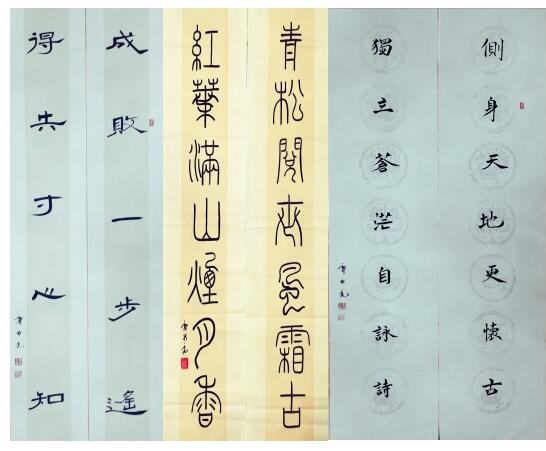 側身天地更懷古
獨立蒼茫自詠詩
青松閱世風霜古
紅葉滿山煙月香
成敗一步遙
得失寸心知